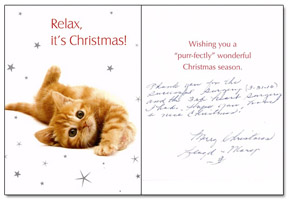 Relax,
it's Christmas!
Wishing you a
"purr-fectly" wonderful
Christmas season.
Thank you for the
Surgery
and the Heart Surgery
I had. Hope you have
a nice Christmas!
Merry Christmas